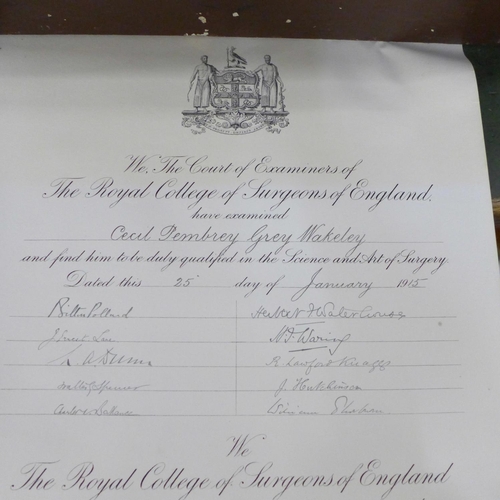 We, The Court of Examiners of
The Royal College of Surgeons of England.
have examined
Cecil Pembrey Grey Wakeley
and find him to be duly qualified in the Science and Art of Surgery.
Dated this 25 day of January 1915
Bilton Pollard Herbert F Waterhouse
J Ernest Lane H J Waring
L A Dunn R Lawford Knaggs
Walter G Spencer J Hutchinson
We
The Royal College of Surgeons of England